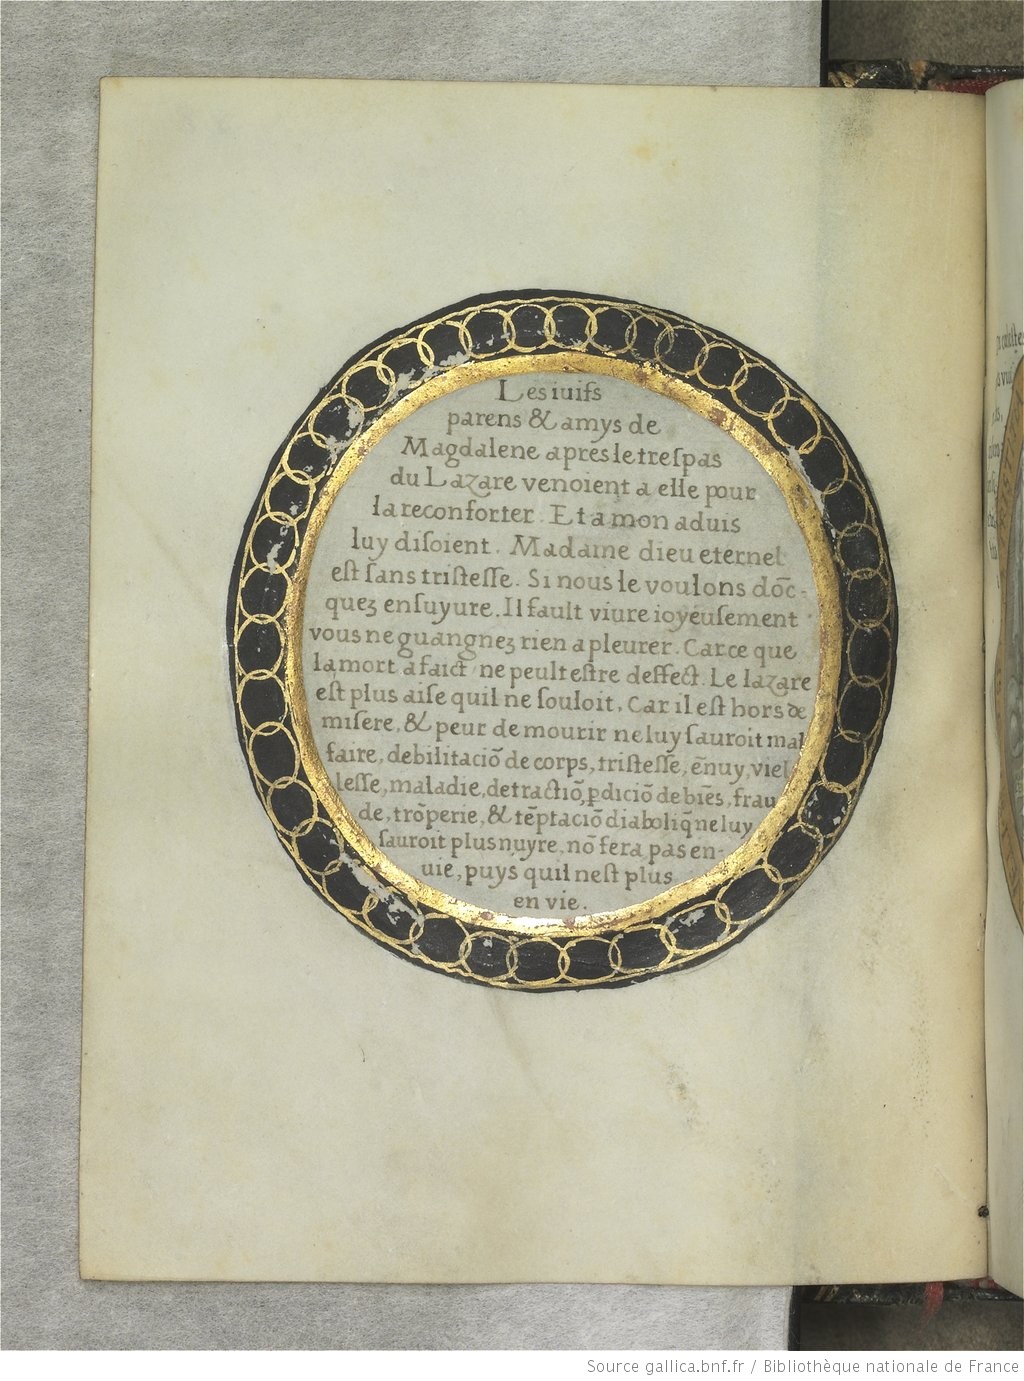 Les iuifs
parens & amys de
Magdalene apres le trespas
du Lazare venoient a elle pour
la reconforter. Et a mon aduis
luy disoient. Madame dieu eternel
est sans tristesse. Si nous le voulons dōc-
quez ensuyure. Il fault viure ioyeusement
vous ne guangnez rien a pleurer. Car ce que
la mort a faict ne peult estre deffect. Le lazare
est plus aise quil ne souloit, Car il est hors de
misere, & peur de mourir ne luy sauroit mal
faire, debilitaciō de corps, tristesse, ēnuy, viel
lesse, maladie, detractiō, ꝑdiciō de biēs, frau
de, trōperie, & tēptaciō diaboliq̄ ne luy
sauroit plus nuyre, nō fera pas en-
uie, puys quil nest plus
en vie.
Source gallica.bnf.fr / Bibliothèque nationale de France